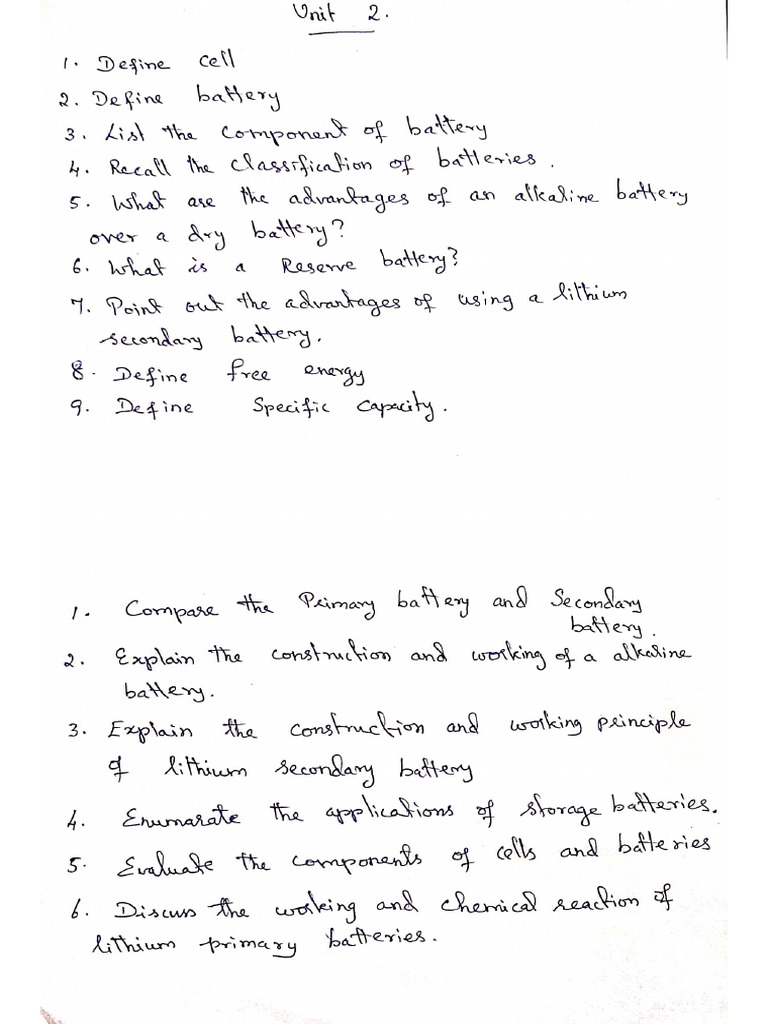 Unit 2.
1. Define cell
2. Define battery
3. List the component of battery
4. Recall the classification of batteries.
5. What are the advantages of an alkaline battery
over a dry battery?
6. What is a Reserve battery?
7. Point out the advantages of using a lithium
secondary battery.
8. Define free energy
9. Define Specific Capacity.
1. Compare the Primary battery and Secondary
battery.
2. Explain the construction and working of a alkaline
battery.
3. Explain the construction and working principle
of lithium secondary battery
4. Enumarate the applications of storage batteries.
5. Evaluate the components of cells and batteries
6. Discuss the working and chemical reaction of
lithium primary batteries.